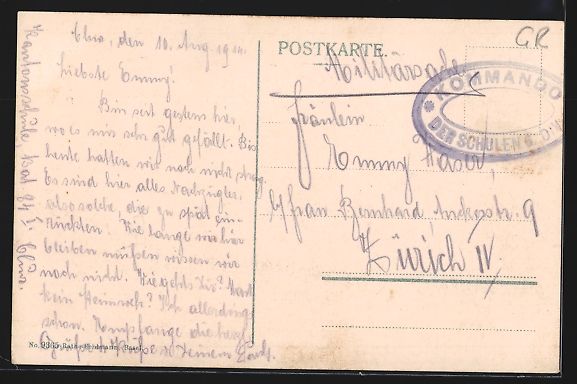 Chur, den 10. Aug. 1914.
Liebste Emmy!
Bin seit gestern hier,
wo es mir sehr gut gefällt. Bis
heute hatten wir noch nicht streng.
Es sind hier alles Nachzügler,
also solche, die zu spät ein-
rückten. Wie lange wir hier
bleiben müssen wissen wir
noch nicht. Wie gehts Dir? Hast
kein Heimweh? Ich allerdings
schon. Empfange die herzl.
Grüße & Küße v. Deinem
No. 9365 Basel.
Kantonsschule, Bat. 84 I. Chur.
POSTKARTE.
Militärsache
GR
KOMMANDO
DER SCHULEN 6. DIV
Fräulein
Emmy Haser,
b/ Frau Bernhard, Ankerstr. 9
Zürich IV